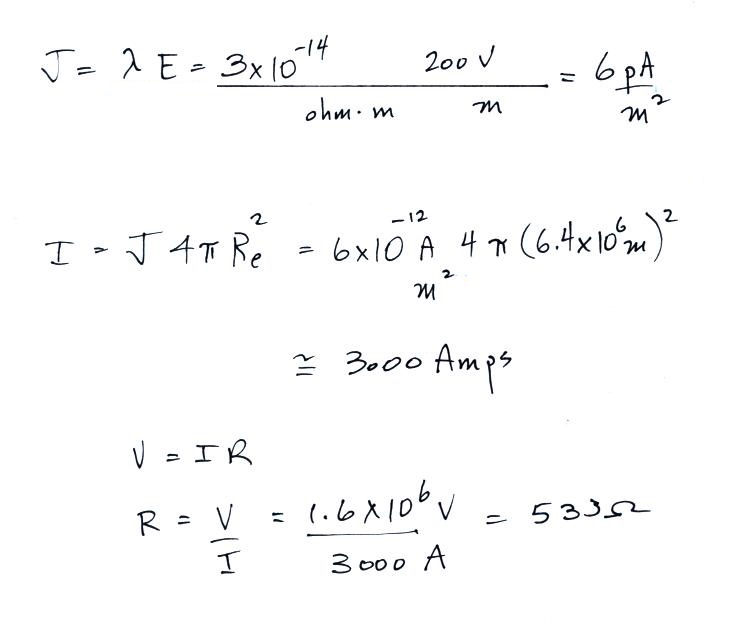 J = λ E = 3x10^-14 / ohm·m 200 V / m = 6 pA / m^2
I = J 4π Re^2 = 6x10^-12 A / m^2 4π (6.4x10^6 m)^2
≅ 3000 Amps
V = I R
R = V / I = 1.6x10^6 V / 3000 A = 533Ω